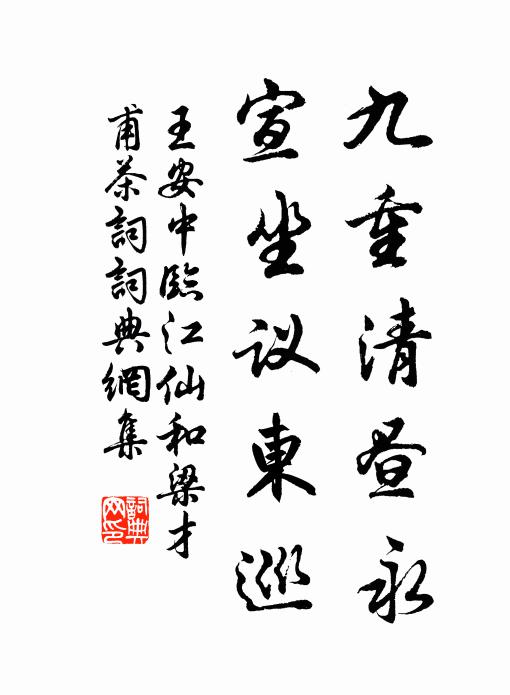 九重清昼永
宣坐议東巡
王安中臨江仙和梁才
甫茶詞詞典網集
詞典
网印